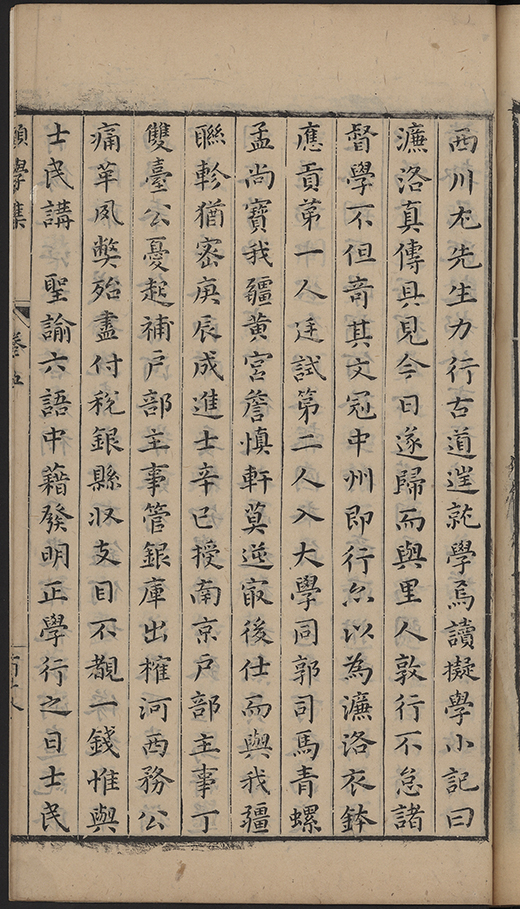 西川尤先生力行古道遑就學焉讀擬學小記曰
濂洛真傳具見今日遂歸而與里人敦行不怠諸
督學不但奇其文冠中州即行亦以為濂洛衣鉢
應貢第一人廷試第二人入大學同郭司馬青螺
孟尚寶我疆黄宫詹慎軒莫逆㝡後仕而與我疆
聮軫猶密庚辰成進士辛巳授南京户部主事丁
雙臺公憂起補户部主事管銀庫出榷河西務公
痛革夙弊殆盡付税銀縣収支目不覩一錢惟與
士民講 聖諭六語中藉發明正學行之日士民
願學集 卷五